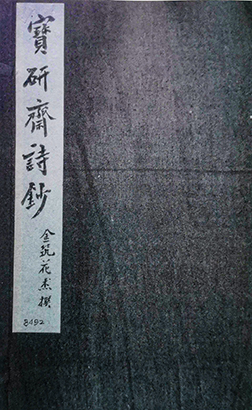 寶研齋詩鈔
金筑花杰撰
8492